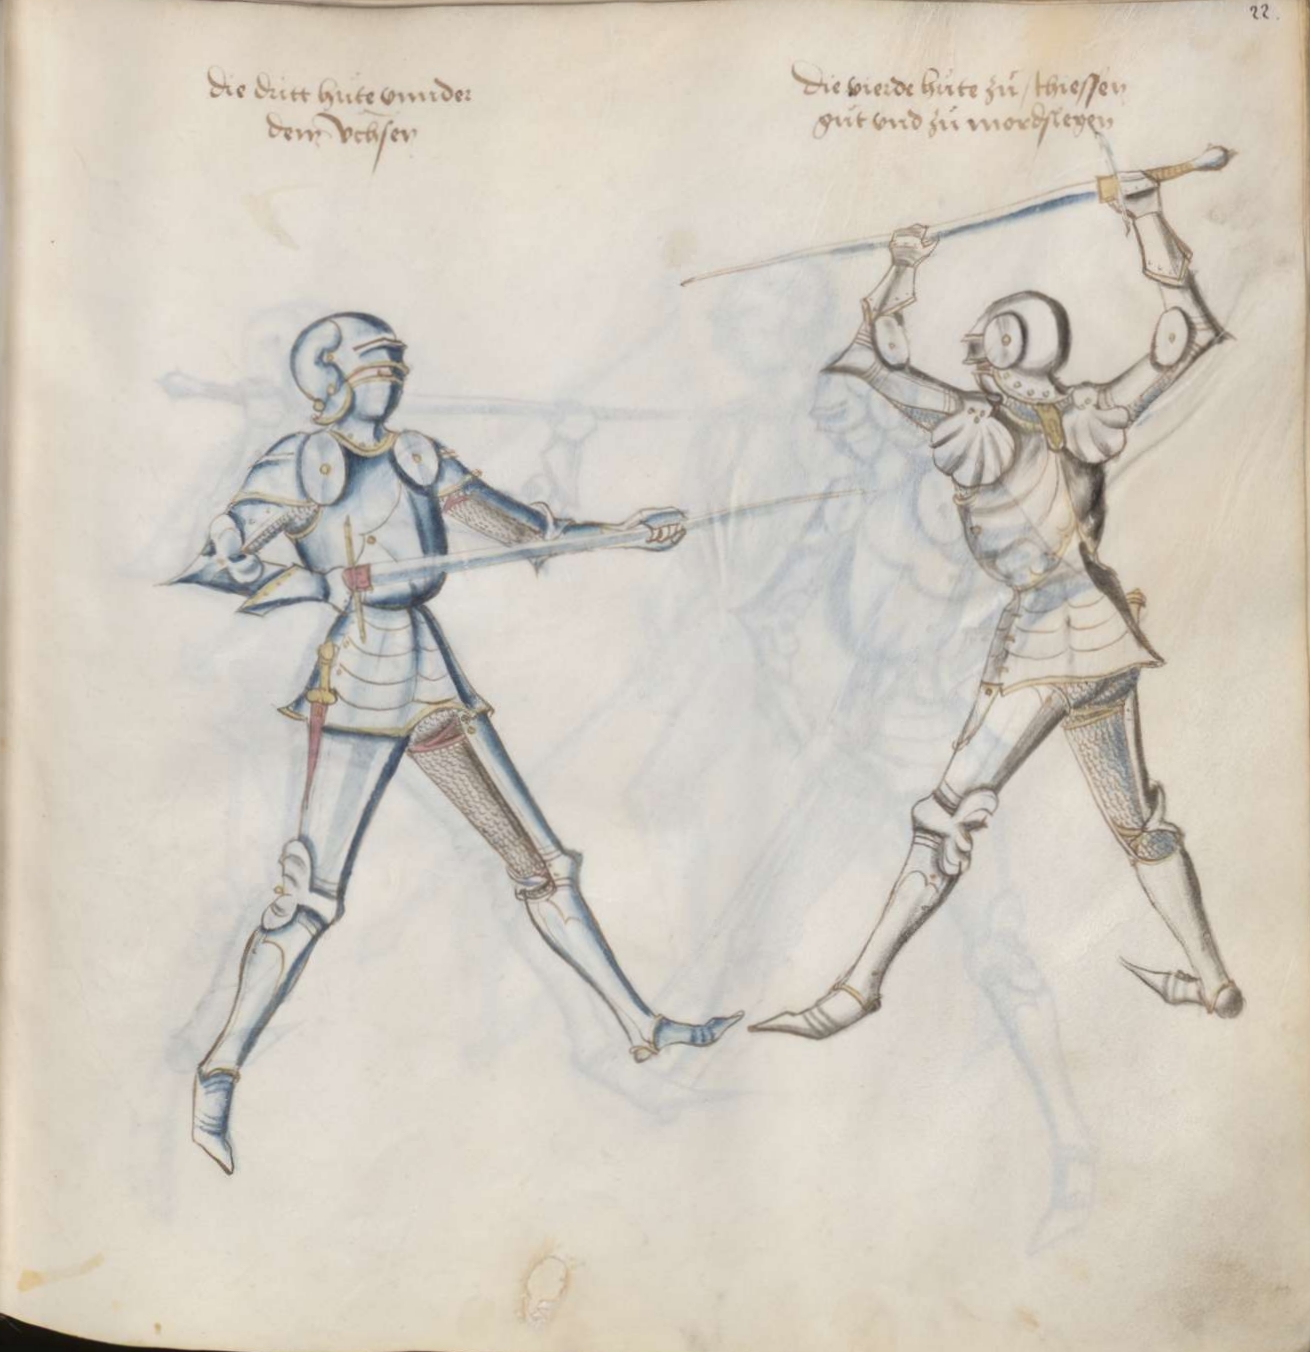 22.
die dritt hůte vnnder
dem Vchsen
die vierde hůte zů schiessen
gůt vnd zů mordslegen